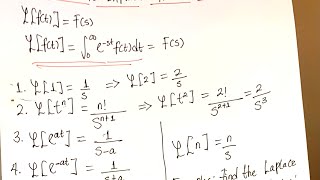 ℒ[f(t)] = F(s)
ℒ[f(t)] = ∫₀^∞ e^-st f(t)dt = F(s)
1. ℒ[1] = 1/s ⇒ ℒ[2] = 2/s
2. ℒ[t^n] = n!/s^n+1 ⇒ ℒ[t^2] = 2!/s^2+1 = 2/s^3
3. ℒ[e^at] = 1/s-a
ℒ[n] = n/s
4. ℒ[e^-at] = 1/s+a
find the Laplace